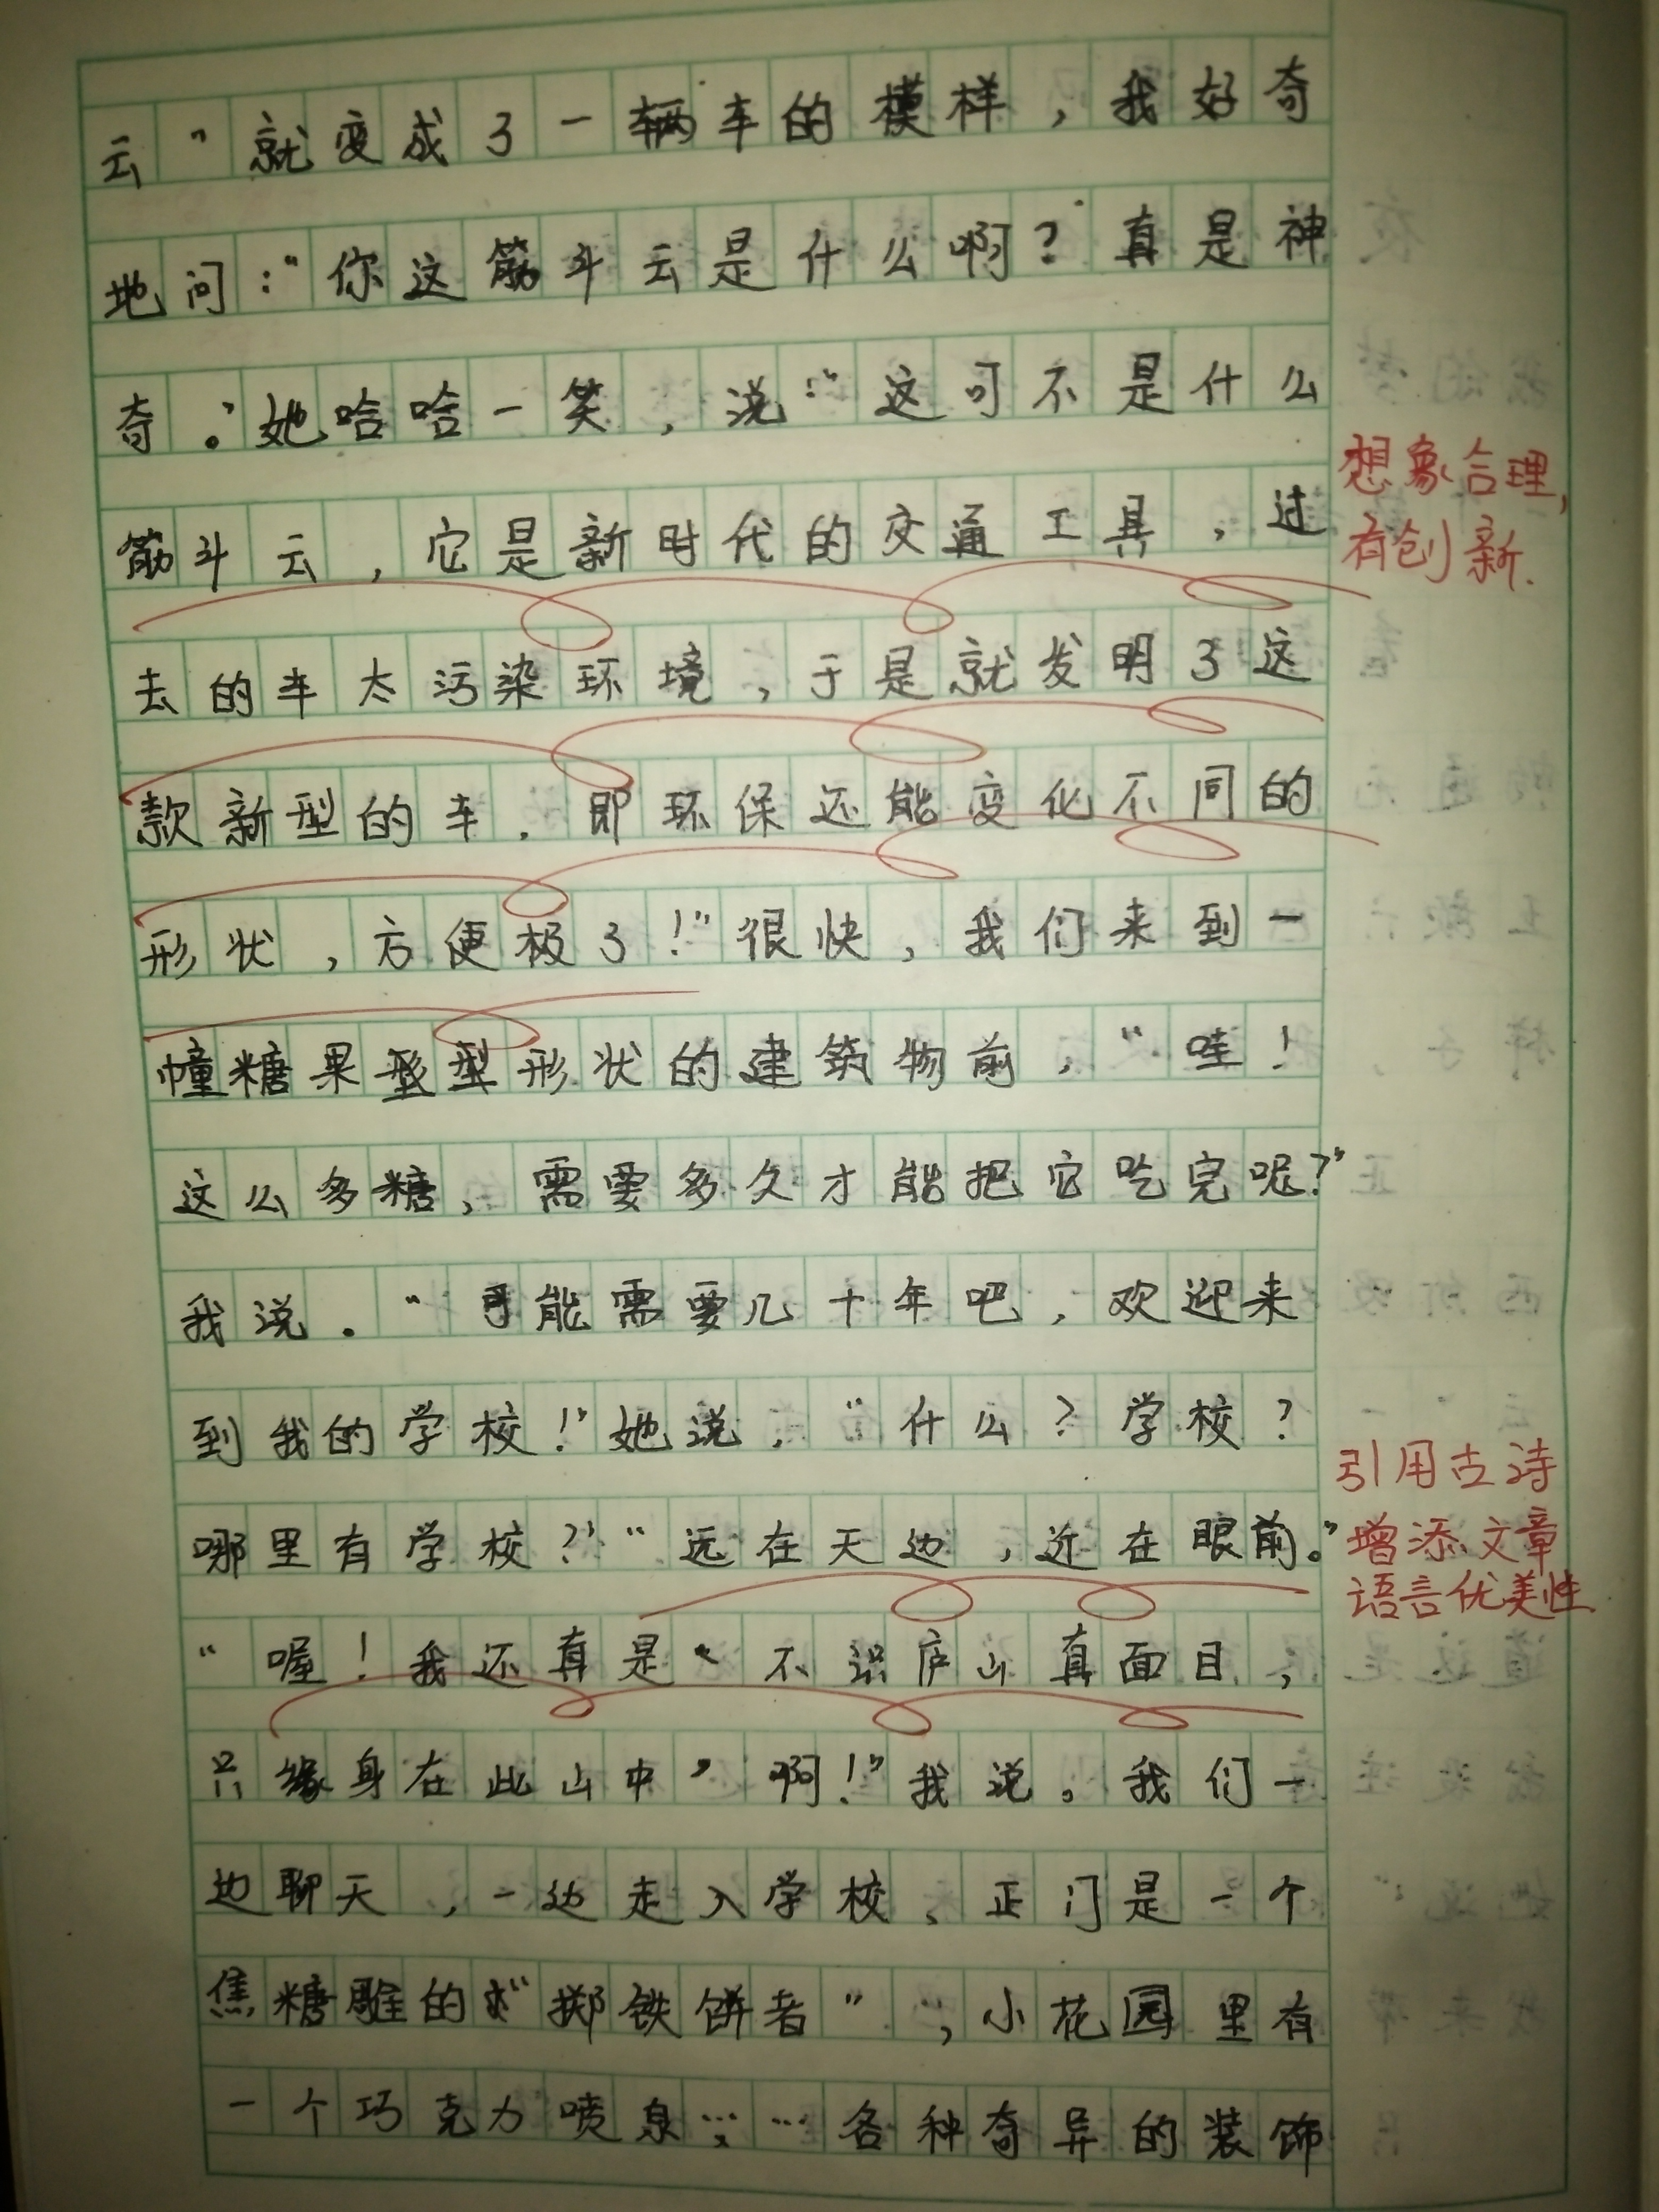 云"就变成了一辆车的模样，我好奇
地问："你这筋斗云是什么啊？真是神
奇。"她哈哈一笑，说："这可不是什么
筋斗云，它是新时代的交通工具，过
想象合理，
有创新.
去的车太污染环境，于是就发明了这
款新型的车，即环保还能变化不同的
形状，方便极了！"很快，我们来到一
幢糖果型形状的建筑物前，"哇！
这么多糖，需要多久才能把它吃完呢？"
我说。"可能需要几十年吧，欢迎来
到我的学校！"她说，"什么？学校？
哪里有学校？""远在天边，近在眼前。"
引用古诗
增添文章
语言优美性
"喔！我还真是"不识庐山真面目，
只缘身在此山中"啊！"我说。我们一
边聊天，一边走入学校、正门是一个
焦糖雕的"掷铁饼者"，小花园里有
一个巧克力喷泉……各种奇异的装饰